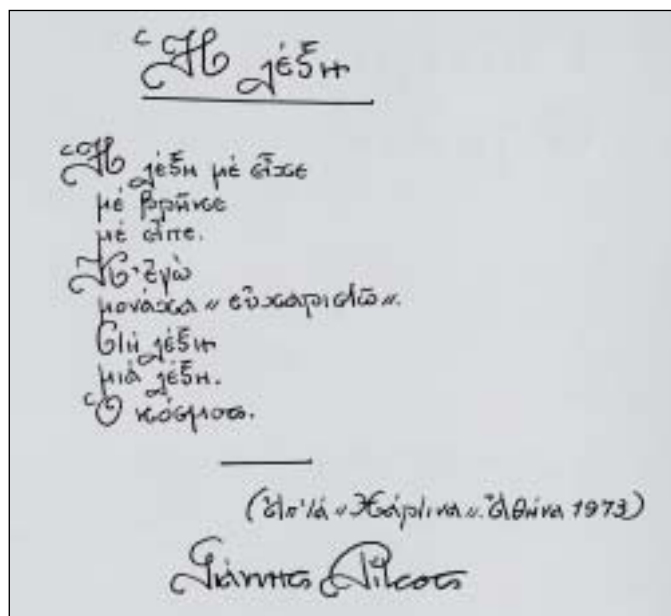 Ἡ λέξη
Ἡ λέξη μὲ εἶχε
μὲ βρῆκε
μὲ εἶπε.
Κ' ἐγὼ
μονάχα «εὐχαριστῶ».
Στὴ λέξη
μιὰ λέξη.
Ὁ κόσμος.
(ἀπ' τὰ «Χάρτινα». Ἀθήνα 1973)
Γιάννης Ρίτσος